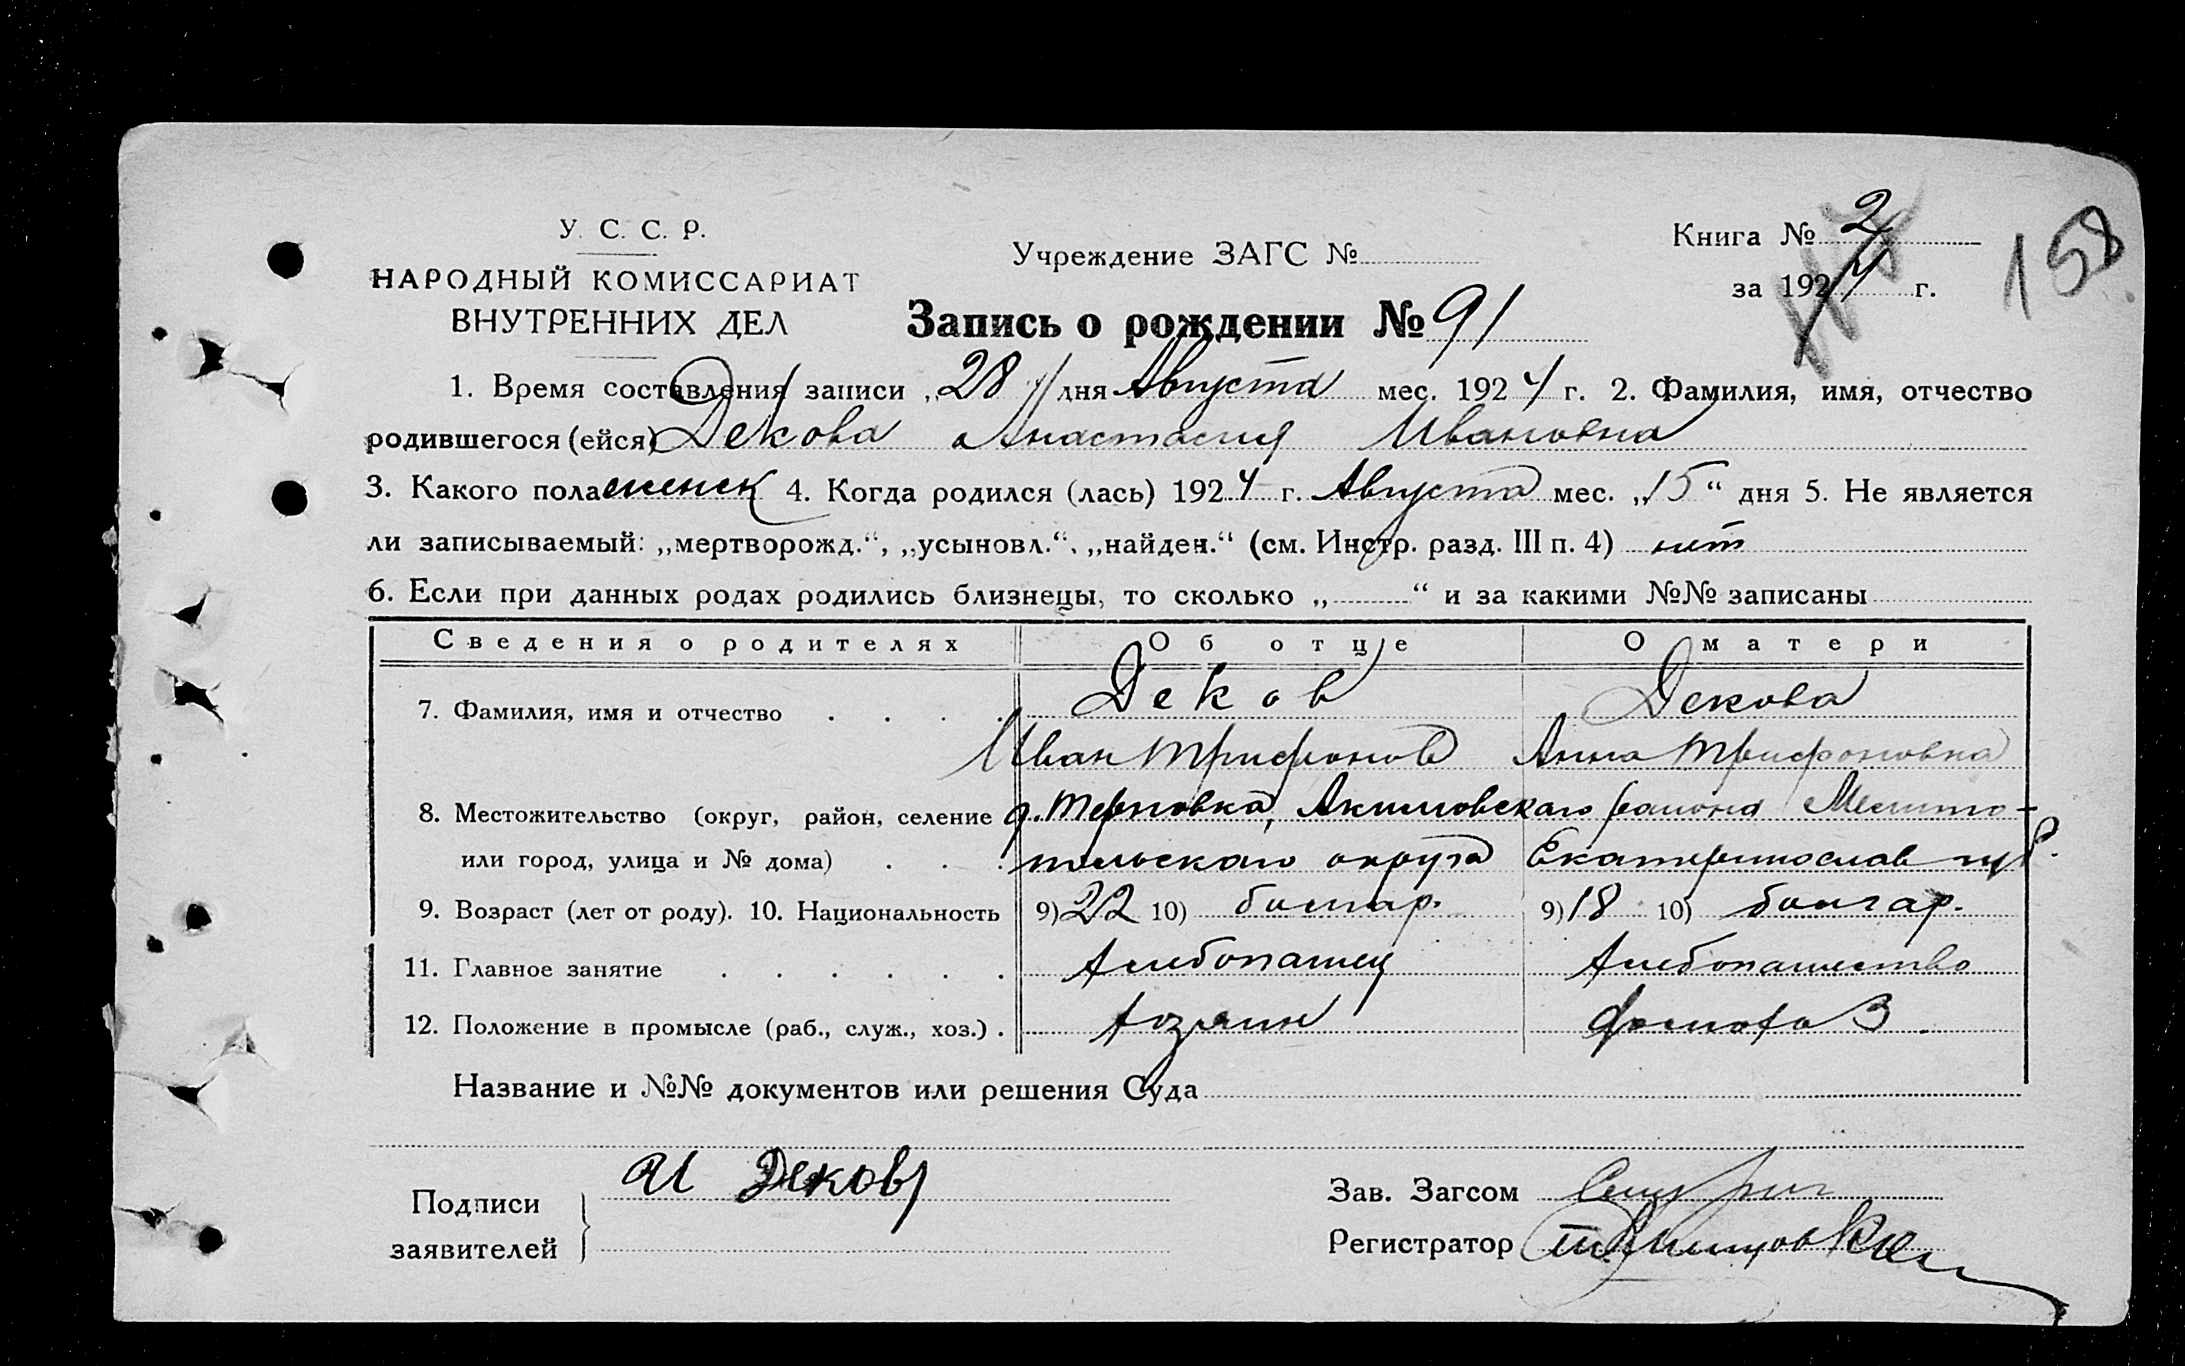 У. С. С. Р.
НАРОДНЫЙ КОМИССАРИАТ
ВНУТРЕННИХ ДЕЛ
Учреждение ЗАГС №
Запись о рождении № 91
Книга № 2
за 1924 г.
158
1. Время составления записи „28“ дня Августа мес. 1924 г. 2. Фамилия, имя, отчество
родившегося (ейся) Декова Анастасия Ивановна
3. Какого пола женск 4. Когда родился (лась) 1924 г. Августа мес. „15“ дня 5. Не является
ли записываемый: „мертворожд.“, „усыновл.“, „найден.“ (см. Инстр. разд. III п. 4) нет
6. Если при данных родах родились близнецы, то сколько „ “ и за какими №№ записаны
Сведения о родителях Об отце О матери
7. Фамилия, имя и отчество . . . . Деков Декова
Иван Трифонов Анна Трифоновна
8. Местожительство (округ, район, селение д. Терновка, Акимовского района Мелито-
или город, улица и № дома) . . . польского округа Екатеринослав губ.
9. Возраст (лет от роду). 10. Национальность 9) 22 10) болгар. 9) 18 10) болгар.
11. Главное занятие . . . . . . Хлебопашец Хлебопашество
12. Положение в промысле (раб., служ., хоз.) . хозяин
Название и №№ документов или решения Суда
Подписи
заявителей
И Деков
Зав. Загсом
Регистратор